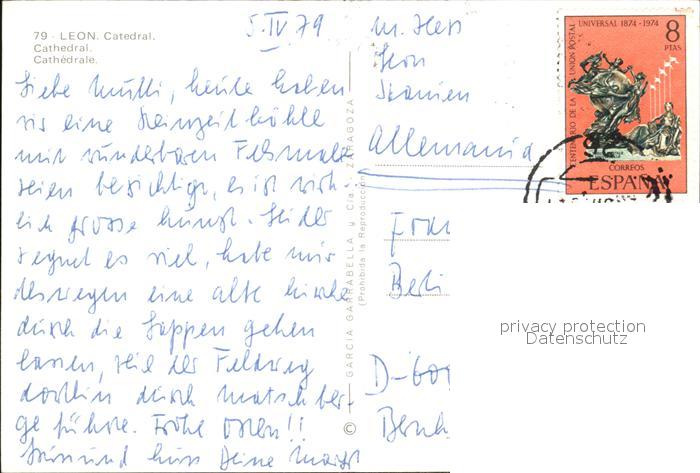 79 - LEON. Catedral.
Cathedral.
Cathédrale.
5. IV 79
Liebe Mutti, heute haben
wir eine Steinzeithöhle
mit wunderbaren Felsmale-
reien besichtigt, es ist wirk-
lich grosse Kunst. Leider
regnet es viel, habe mir
deswegen eine alte Kirche
durch die Lappen gehen
lassen, weil der Feldweg
dorthin durch Matschber-
ge führte. Frohe Ostern!!
Kuss Deine
GARCIA GARRABELLA y Cía. - ZARAGOZA
(Prohibida la Reproducción)
©
León
Spanien
Allemania
Frau
Berli
D-600
CENTENARIO DE LA UNION POSTAL UNIVERSAL 1874-1974
8
PTAS
CORREOS
ESPAÑA
privacy protection
Datenschutz